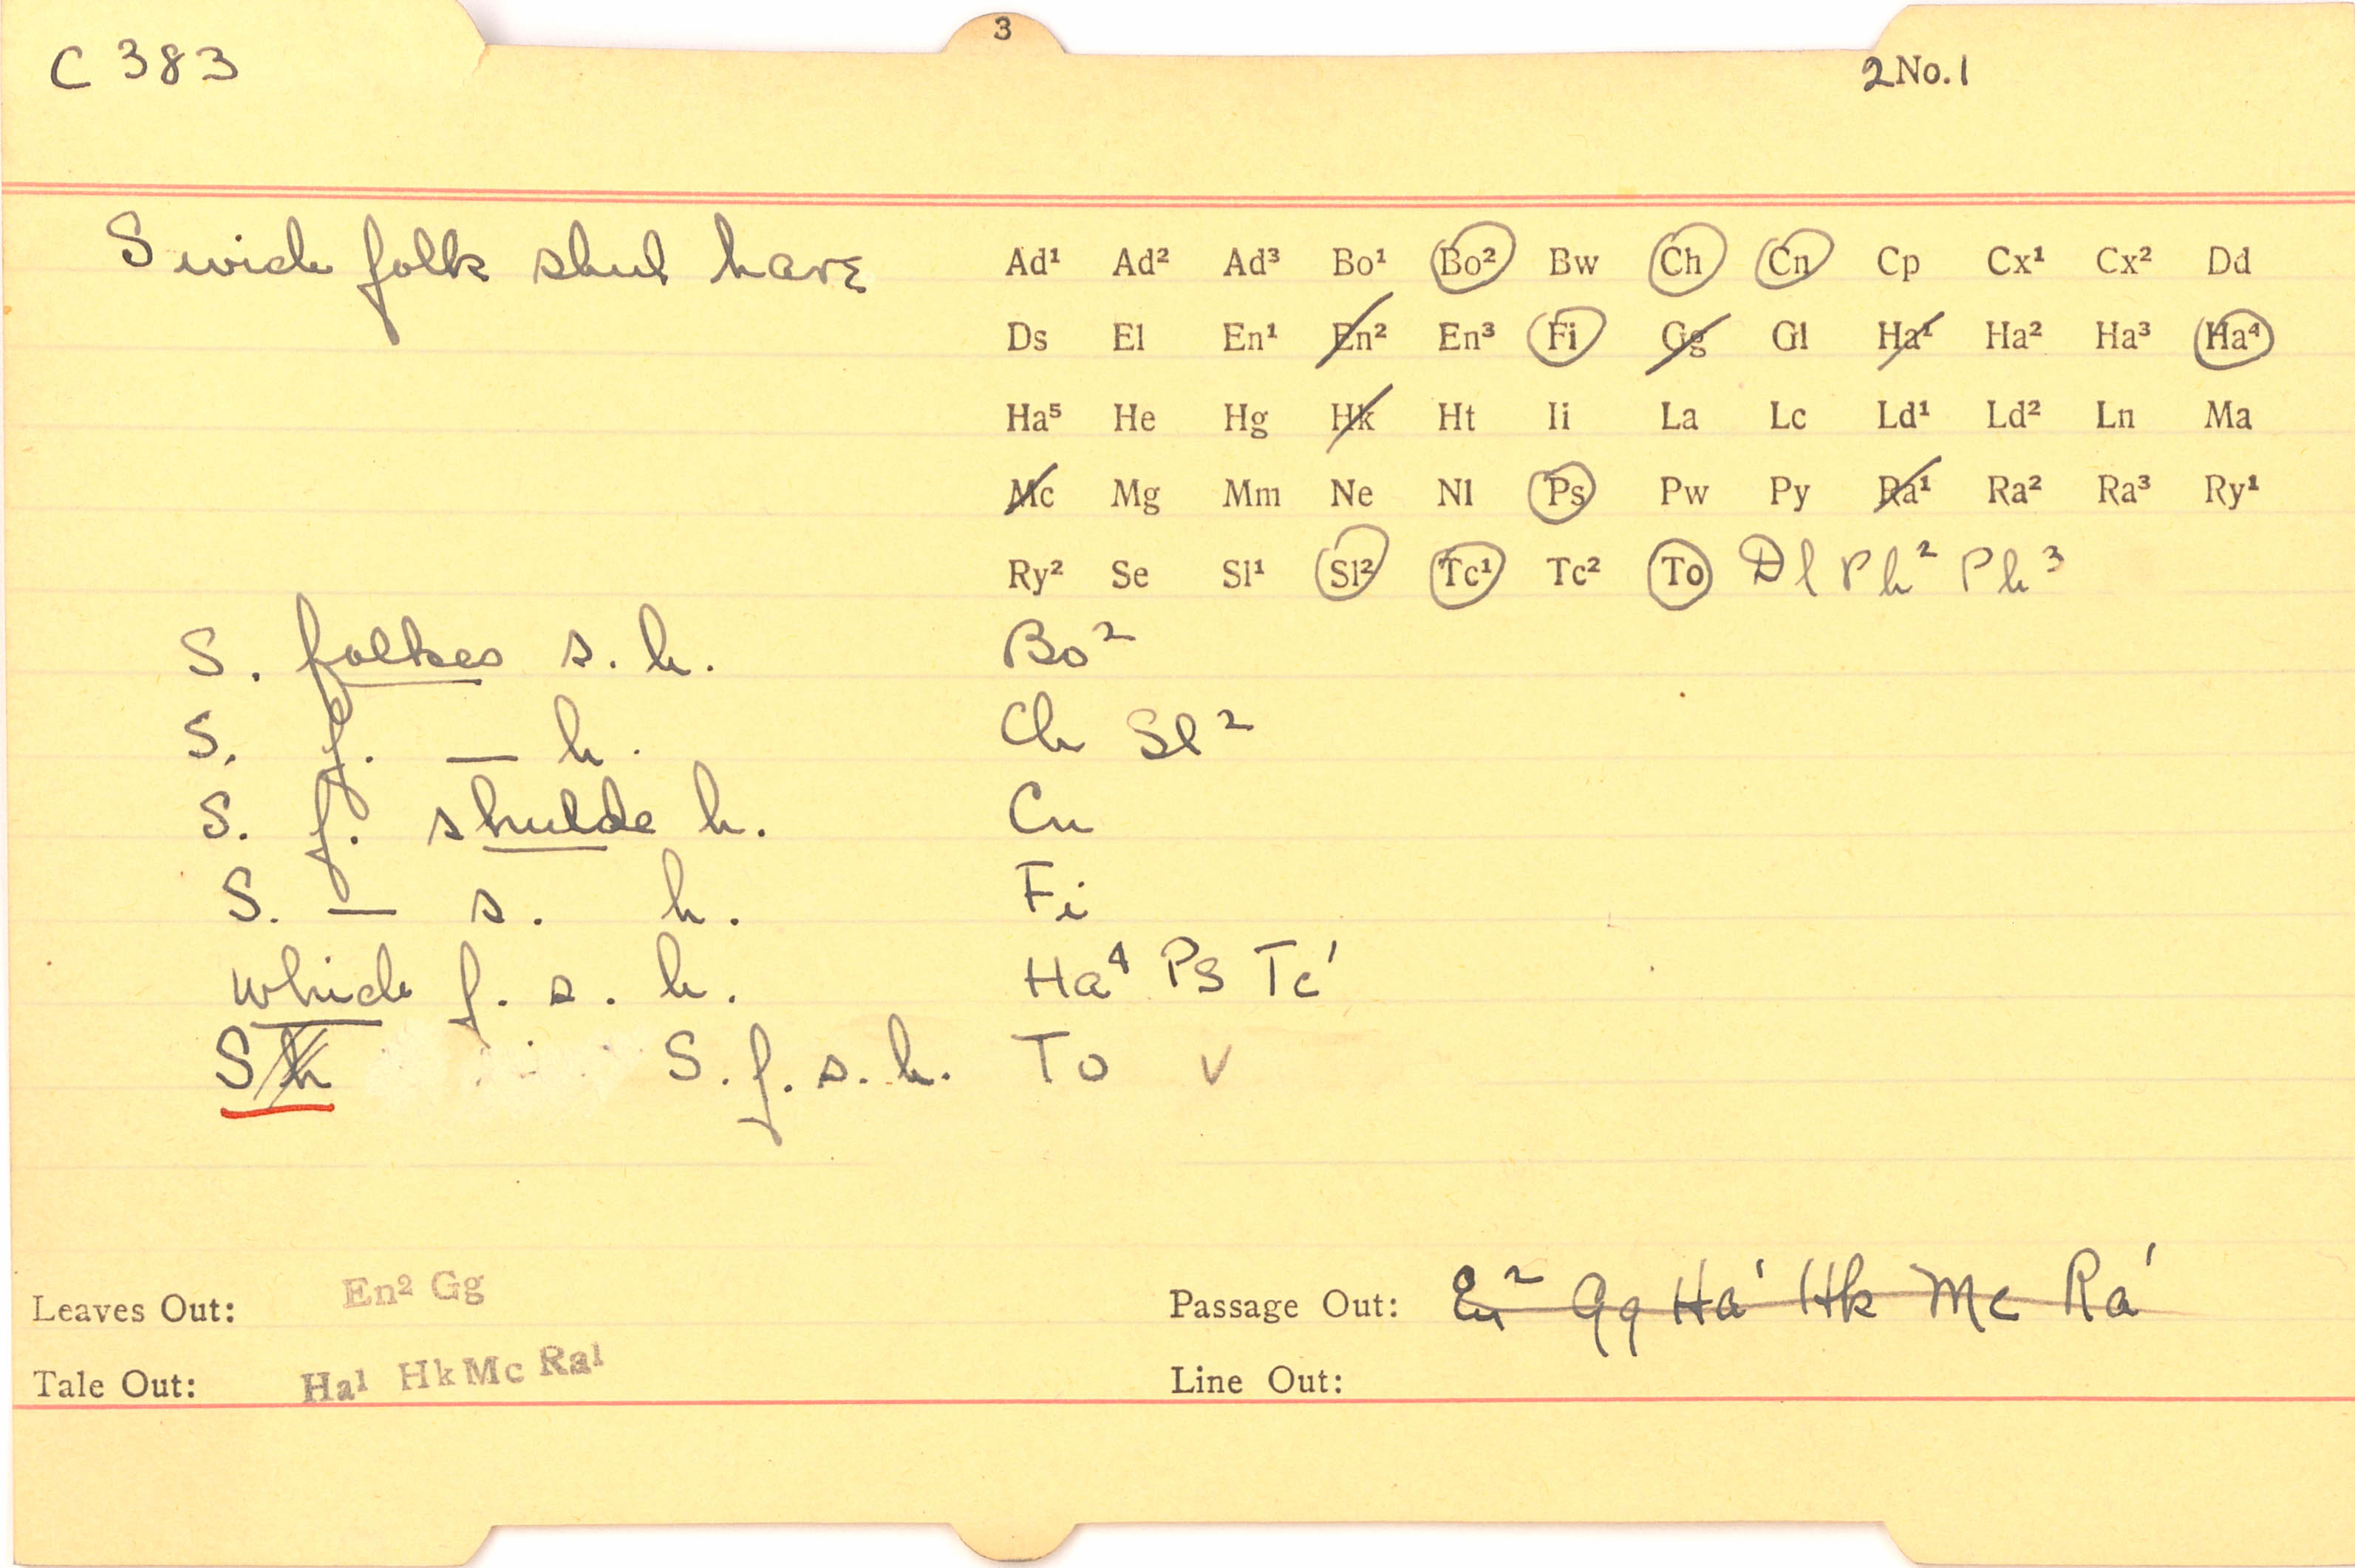 3
C 383 2No.1
Swich folk shul have Ad¹ Ad² Ad³ Bo¹ Bo² Bw Ch Cn Cp Cx¹ Cx² Dd
Ds El En¹ En² En³ Fi Gg Gl Ha¹ Ha² Ha³ Ha⁴
Ha⁵ He Hg Hk Ht Ii La Lc Ld¹ Ld² Ln Ma
Mc Mg Mm Ne Nl Ps Pw Py Ra¹ Ra² Ra³ Ry¹
Ry² Se Sl¹ Sl² Tc¹ Tc² To Dl Ph² Ph³
S. folkes s. h. Bo²
S. f. — h. Ch Sl²
S. f. shulde h. Cn
S. — s. h. Fi
which f. s. h. Ha⁴ Ps Tc¹
Sh S. f. s. h. To ✓
Leaves Out: En² Gg Passage Out: En² Gg Ha¹ Hk Mc Ra¹
Tale Out: Ha¹ Hk Mc Ra¹ Line Out: